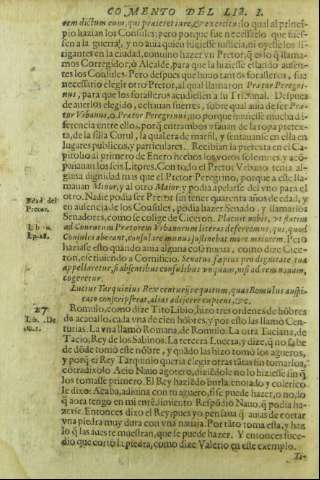 COMENTO DEL LIB. I.
eem dictum eum, qui præiret iure, & exercitu: lo qual al princi-
pio hazian los Consules; pero porque fue necessario que fues-
sen a la guerra, y no auia quien hiziesse justicia, ni oyesse los li-
tigantes en la ciudad, conuino hazer vn Pretor, q̃ es lo q̃ llama-
mos Corregidor, o Alcalde, para que la hiziesse estando ausen-
tes los Consules. Pero despues que huuo tantos forasteros, fue
necessario elegir otro Pretor, al qual llamaron Prætor Peregri-
nus, para que los forasteros acudiessen a su Tribunal. Despues
de auerlos elegido, echauan suertes, sobre qual auia de ser Præ-
tor Vrbanus, o Prætor Peregrinus, no porque huuiesse mucha di-
ferencia entre ellos, porq̃ entrambos vsauan de la ropa pretex-
ta, de la silla Curul, la qual era de marfil, y sentauanse en ella en
lugares publicos, y particulares. Recibian la pretexta en el Ca-
pitolio al primero de Enero hechos los votos solemnes, y acõ-
pañauan los seis Litores. Con todo el Pretor Vrbano tenia al-
guna dignidad mas que el Pretor Peregrino, porque a este lla-
mauan Minor, y al otro Maior, y podia apelarse del vno para el
otro. Nadie podia ser Pretor sin tener quarenta años de edad, y
en ausencia de los Consules, podia hazer Senado, y llamar los
Senadores, como se colige de Ciceron. Placuit nobis, vt statim
ad Cornutum Prætorem Vrbanorum literas deferremus, qui, quod
Consules aberant, consulare munus sustinebat more maiorum. Pero
haziase esto quando auia alguna cosa nueua, como dize Cice-
ron, escriuiendo a Cornificio. Senatus sæpius pro dignitate tua
appellaretur, si absentibus consulibus vnquam, nisi ad rem nouam,
cogeretur.
Edad del
Pretor.
Lucius Tarquinius Rex centurijs equitum, quas Romulus auspi-
cato conscripserat, alias adijcere cupiens, &c.
27
Romulo, como dize Tito Liuio, hizo tres ordenes de hõbres
de acauallo, cada vna de cien hõbres, y por esso las llamo Cen-
turias. La vna llamo Romana, de Romulo. La otra Taciana, de
Tacio, Rey de los Sabinos. La tercera Lucera, y dize, q̃ no sabe
de dõde tomò este nõbre, y quãdo las hizo tomò los agueros,
y porq̃ el Rey Tarquinio queria elegir otras tãtas sin tomarlos,
cõtradixolo Acio Nauo agorero, diziẽdole no lo hiziesse sin q̃
los tomasse primero. El Rey haziẽdo burla, enojado y colerico
le dixo: Acaba, adiuina con tu aguero, si se puede hazer, o no, lo
q̃ aora tengo en mi entẽdimiẽto. Respõdio Nauo, q̃ podia ha-
zerse. Entonces dixo el Rey, pues yo pensaua q̃ auias de cortar
vna piedra muy dura con vna nauaja. Por tãto toma esta, y han
lo q̃ las aues te muestran, que se puede hazer. Y entonces suce-
dio que cortò la piedra, como dize Valerio en este exemplo.